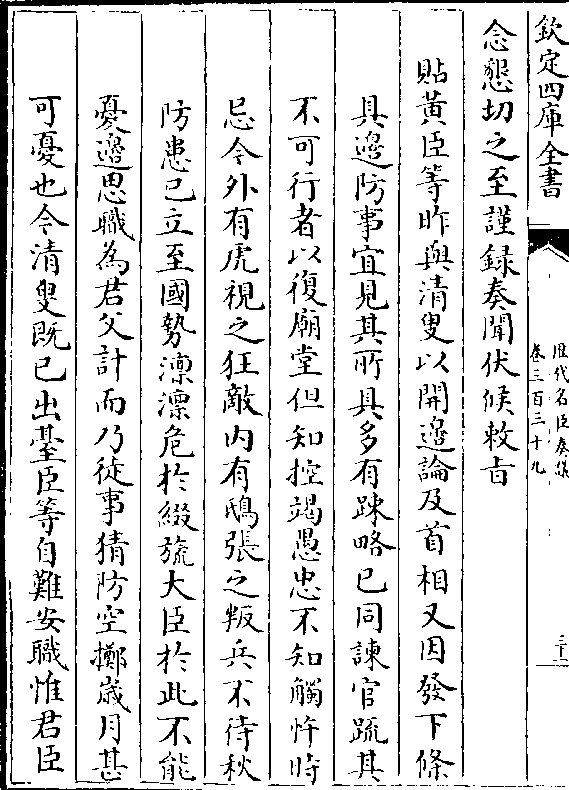 欽定四庫全書
歷代名臣奏議
卷三百三十九
三十二
念懇切之至謹録奏聞伏候敕㫖
貼黄臣等昨與清叟以開邊論及首相又因發下條
具邊防事宜見其所具多有踈略已同諫官䟽其
不可行者以復廟堂但知控竭愚忠不知觸忤時
忌今外有虎視之狂敵内有鴟張之叛兵不待秋
防患已立至國勢凛凛危於綴旒大臣於此不能
憂邊思職為君父計而乃徒事猜防空擲歲月甚
可憂也今清叟既已出臺臣等自難安職惟君臣